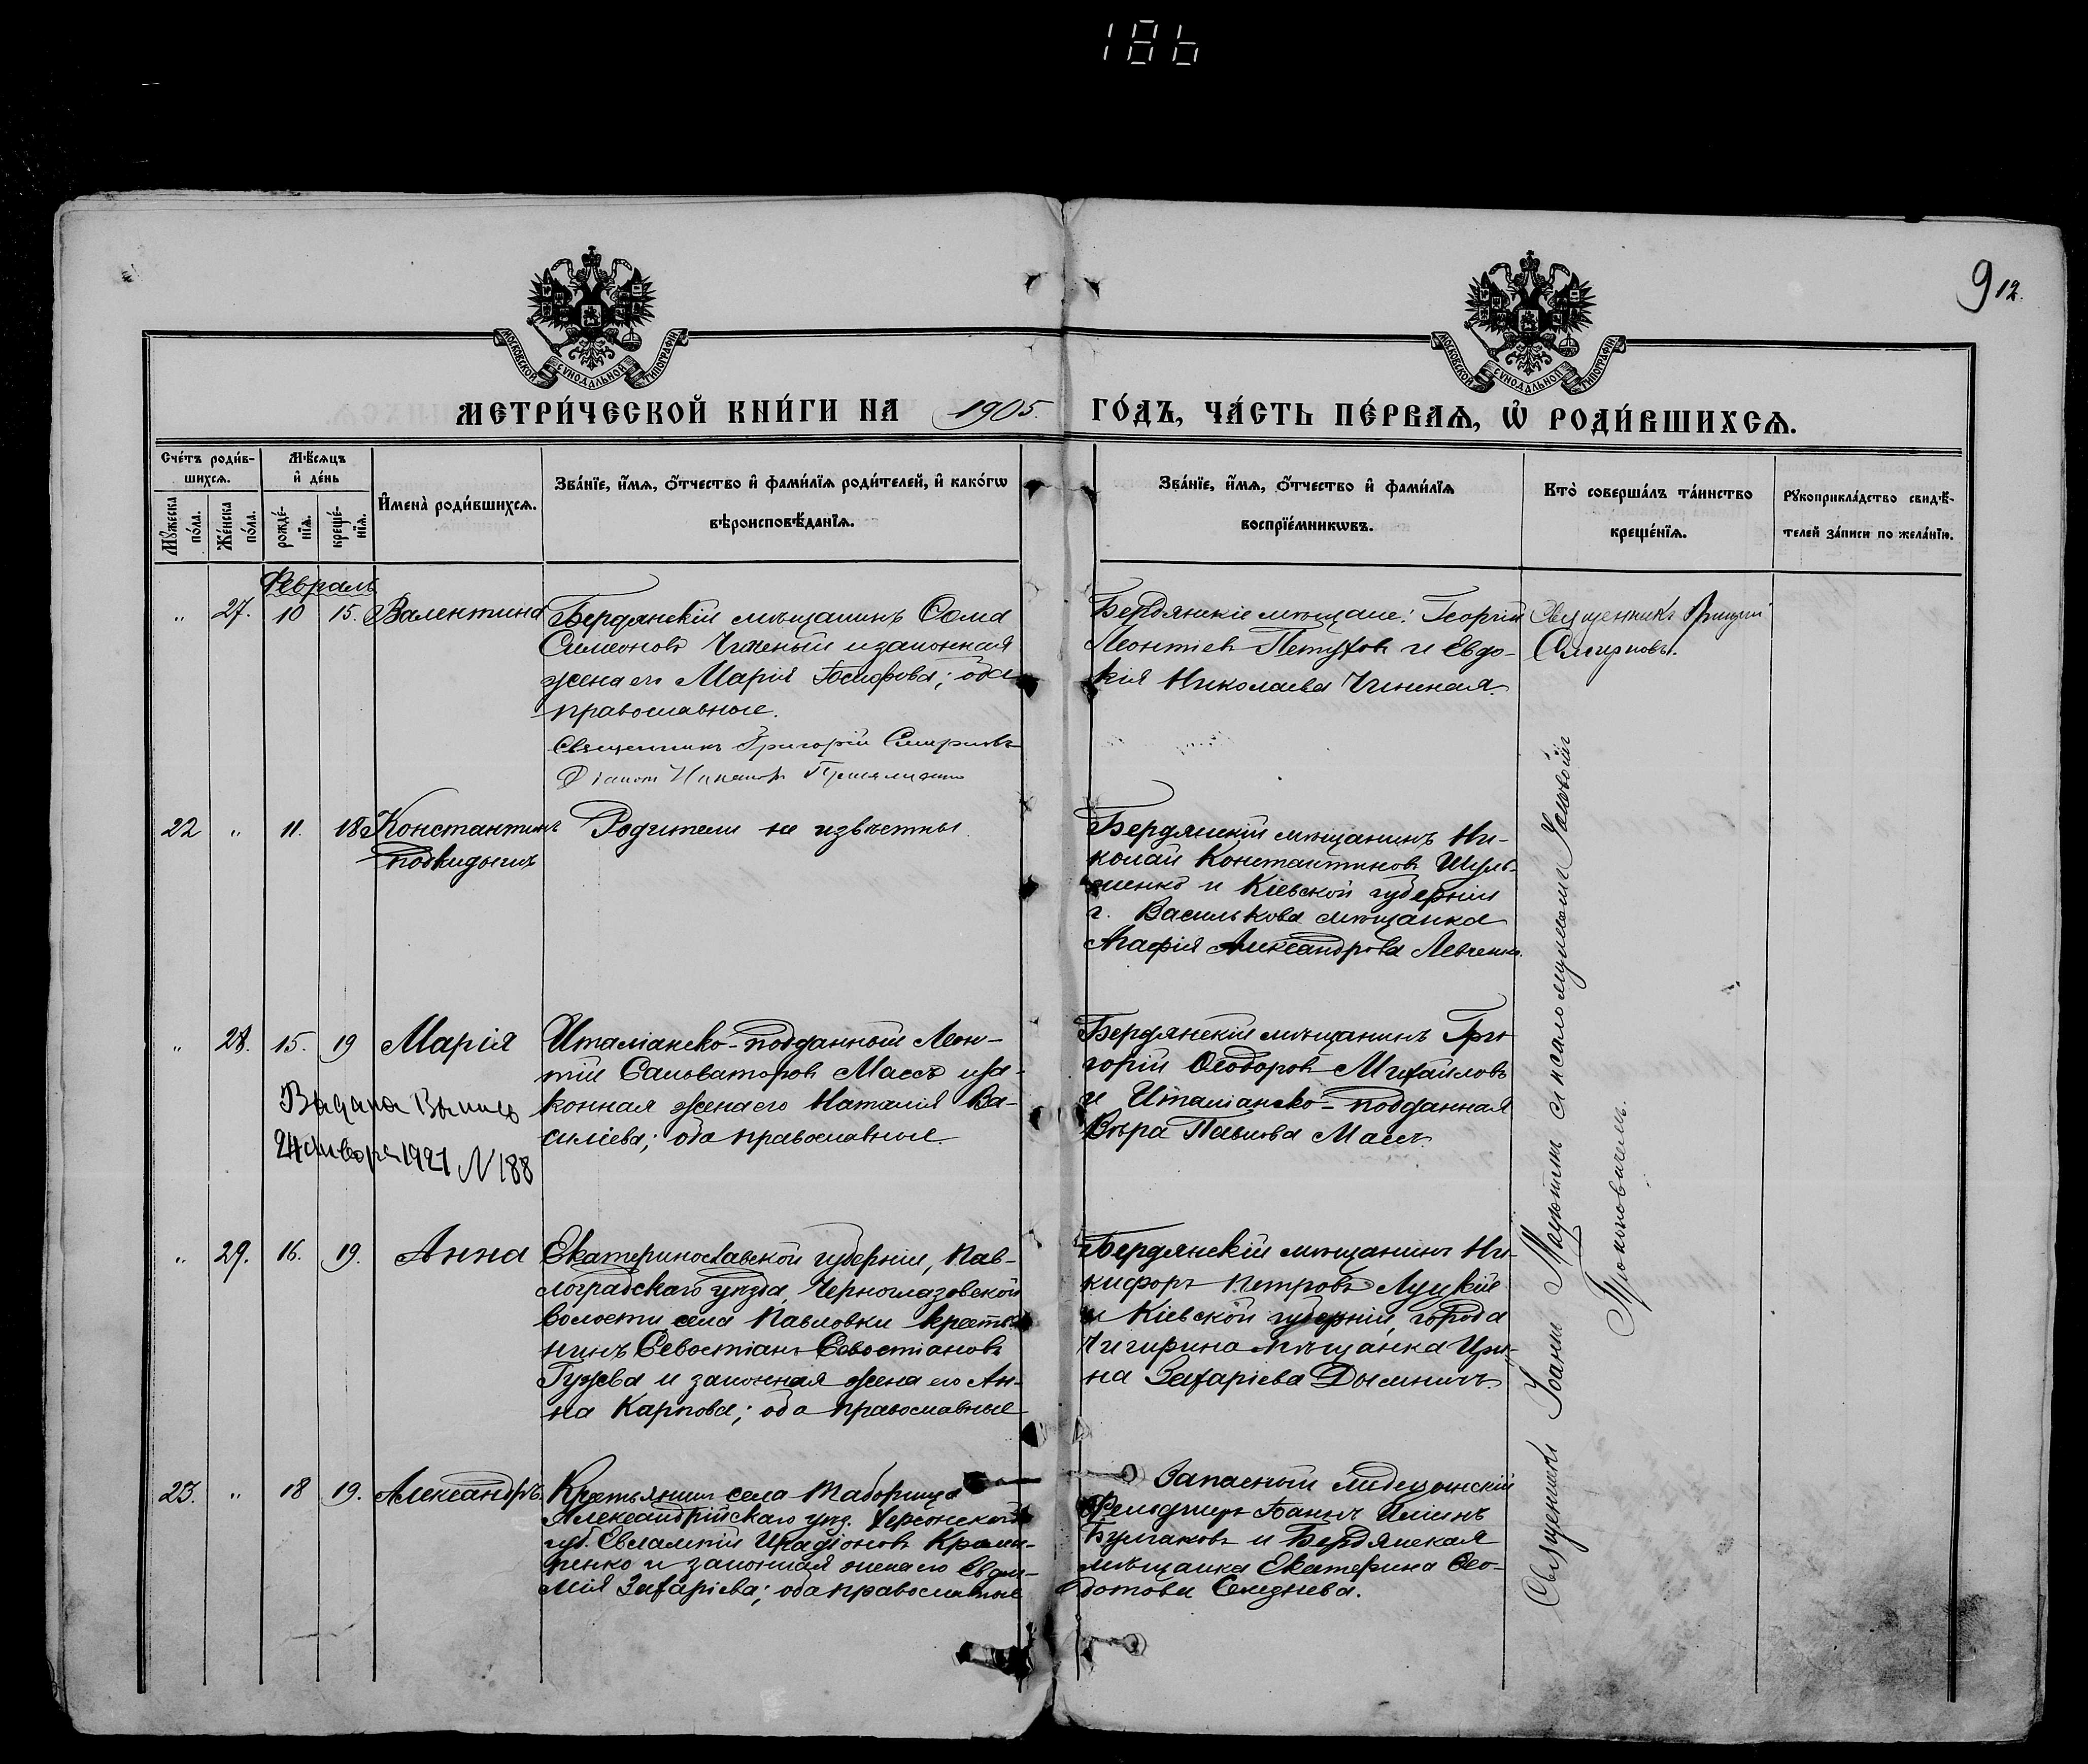 186
9 12.
МОСКОВСКОЙ СУНОДАЛЬНОЙ ТИПОГРАФІИ
МОСКОВСКОЙ СУНОДАЛЬНОЙ ТИПОГРАФІИ
МЕТРИ́ЧЕСКОЙ КНИ́ГИ НА 1905. ГО́ДЪ, ЧА́СТЬ ПЕ́РВАѦ, Ѡ҆ РОДИ́ВШИХСѦ.
Сче́тъ роди́в-
шихсѧ.
Мꙋ́жеска по́ла.
Же́нска по́ла.
Мѣ́сѧцъ
и҆ де́нь
рожде́-
нїѧ.
креще́-
нїѧ.
И҆мена̀ роди́вшихсѧ.
Зва́нїе, и҆́мѧ, ѻ҆́тчество и҆ фами́лїѧ роди́телей, и҆ како́гѡ
вѣроисповѣ́данїѧ.
Зва́нїе, и҆́мѧ, ѻ҆́тчество и҆ фами́лїѧ
воспрїе́мникѡвъ.
Кто̀ соверша́лъ та́инство
креще́нїѧ.
Рꙋкоприкла́дство свидѣ́-
телей за́писи по жела́нїю.
Февраль
„ 27. 10 15. Валентина
Бердянскій мѣщанинъ Ѳома
Симеоновъ и законная
жена его Марія Іосифова; оба
православные.
Священникъ Григорій Смирновъ
Діаконъ
Бердянскіе мѣщане: Георгій
Леонтіевъ Петуховъ и Евдо-
кія Николаева
Священникъ Григорій
Смирновъ.
22 „ 11. 18 Константинъ
подкидышъ
Родители не извѣстны.
Бердянскій мѣщанинъ Ни-
колай Константиновъ Шуль-
женко и Кіевской губерніи
г. Василькова мѣщанка
Агафія Александрова Левченко.
„ 28. 15. 19 Марія
Выдана Выпись
24 января 1921 N 188
Италіанско-подданный Леон-
тій Сальваторовъ Массъ и за-
конная жена его Наталія Ва-
силіева; оба православные.
Бердянскій мѣщанинъ Гри-
горій Ѳеодоровъ Михайловъ
и Италіанско-подданная
Вѣра Павлова Массъ.
„ 29. 16. 19. Анна
Екатеринославской губерніи, Пав-
лоградскаго уѣзда, Черноглазовской
волости, села Павловки крестья-
нинъ Севостіанъ Севостіановъ
Гужва и законная жена его Ан-
на Карпова; оба православные
Бердянскій мѣщанинъ Ни-
кифоръ Петровъ Луцкій
и Кіевской губерніи города
Чигирина мѣщанка Ири-
на Захаріева
23. „ 18 19. Александръ.
Крестьянинъ села Таборища
Александрійскаго уѣз. Херсонской
губ. Евлампій Иродіоновъ
и законная жена его Евфи-
мія Захаріева; оба православные
Запасный медицинскій
Фельдшеръ Іоаннъ Илiинъ
Булгаковъ и Бердянская
мѣщанка Екатерина Ѳео-
дотова Селезнева.
Священникъ Іоаннъ съ псаломщикомъ
Прокоповичемъ.